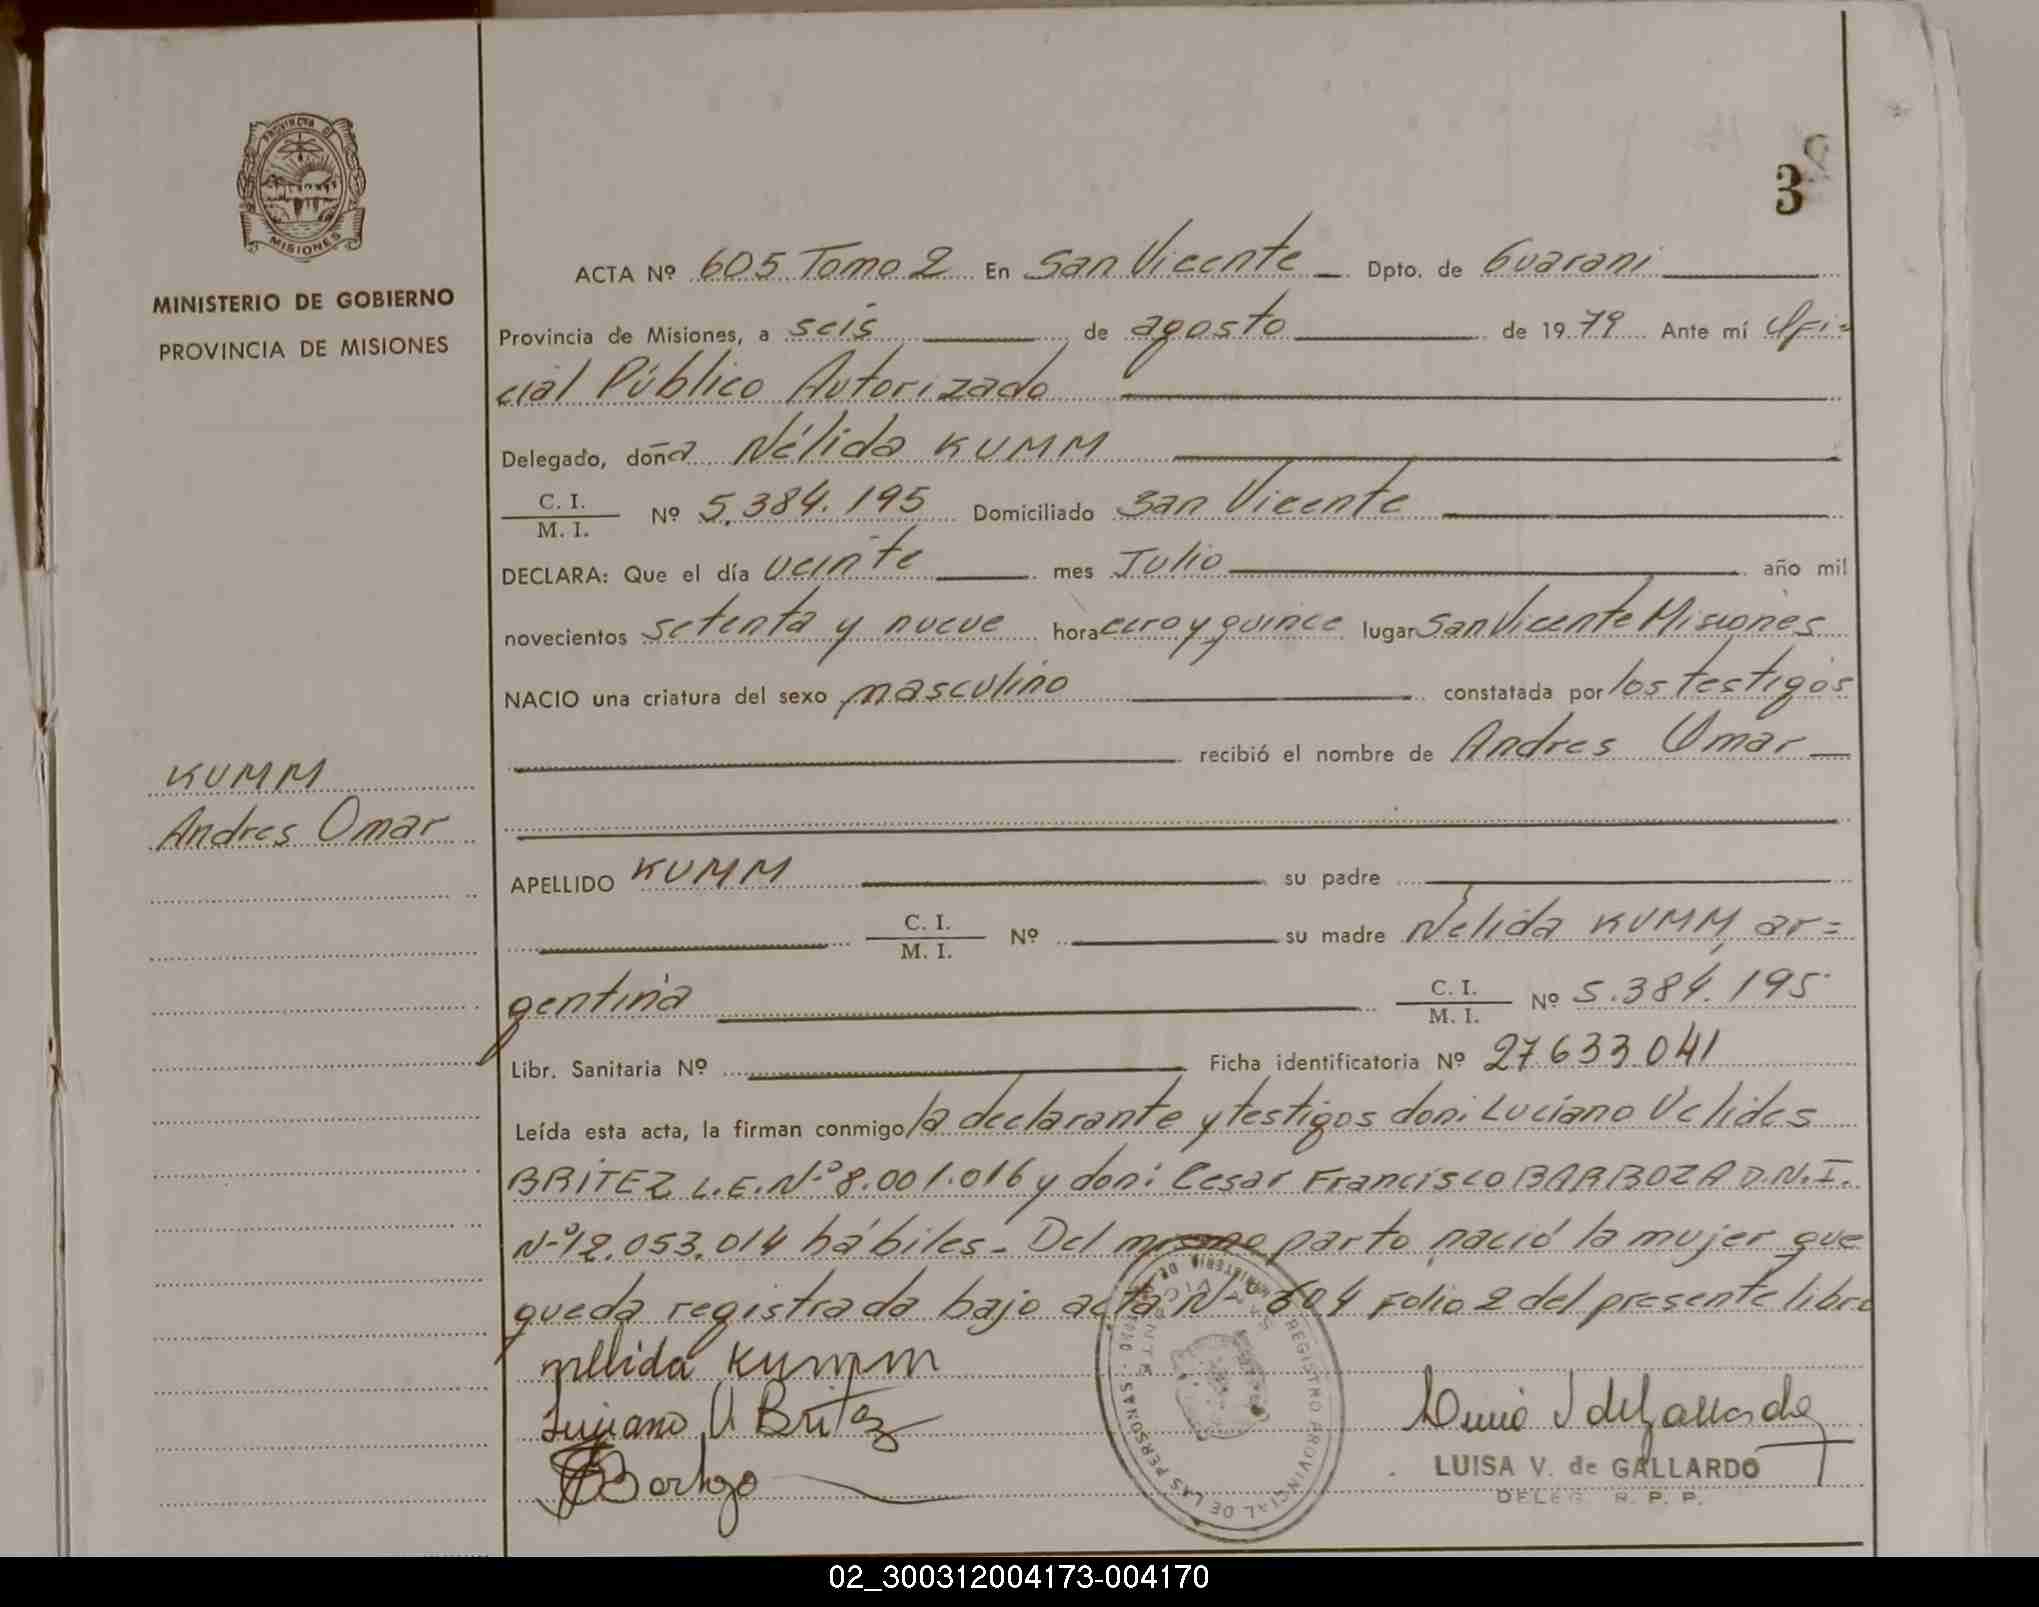 PROVINCIA DE
MISIONES
MINISTERIO DE GOBIERNO
PROVINCIA DE MISIONES
3
ACTA Nº 605 Tomo 2 En San Vicente Dpto. de Guarani
Provincia de Misiones, a seis de agosto de 1979 Ante mí Ofi=
cial Público Autorizado
Delegado, doña Nélida KUMM
C. I.
M. I. Nº 5.384.195 Domiciliado San Vicente
DECLARA: Que el día veinte mes Julio año mil
novecientos setenta y nueve hora cero y quince lugar San Vicente Misiones
NACIO una criatura del sexo masculino constatada por los testigos
recibió el nombre de Andres Omar
KUMM
Andres Omar
APELLIDO KUMM su padre
C. I.
M. I. Nº su madre Nélida KUMM, ar=
gentina C. I.
M. I. Nº 5.384.195
Libr. Sanitaria Nº Ficha identificatoria Nº 27.633.041
Leída esta acta, la firman conmigo la declarante y testigos don: Luciano Velides
BRITEZ L.E.Nº 8.001.016 y don: Cesar Francisco BARBOZA D.N.I.
Nº 12.053.014 hábiles. Del mismo parto nació la mujer que
queda registrada bajo acta Nº 604 Folio 2 del presente libro
nellida kumm
Luciano V Britez
LUISA V. de GALLARDO
DELEG. R. P. P.
REGISTRO PROVINCIAL DE LAS PERSONAS
02_300312004173-004170